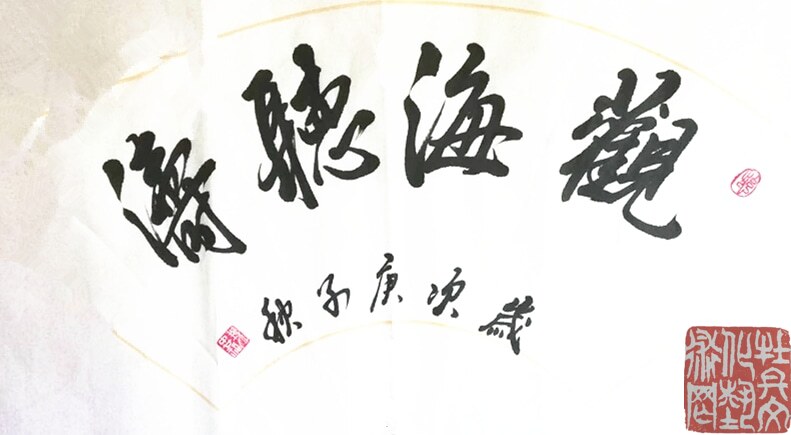 觀海聽濤
歲次庚子秋